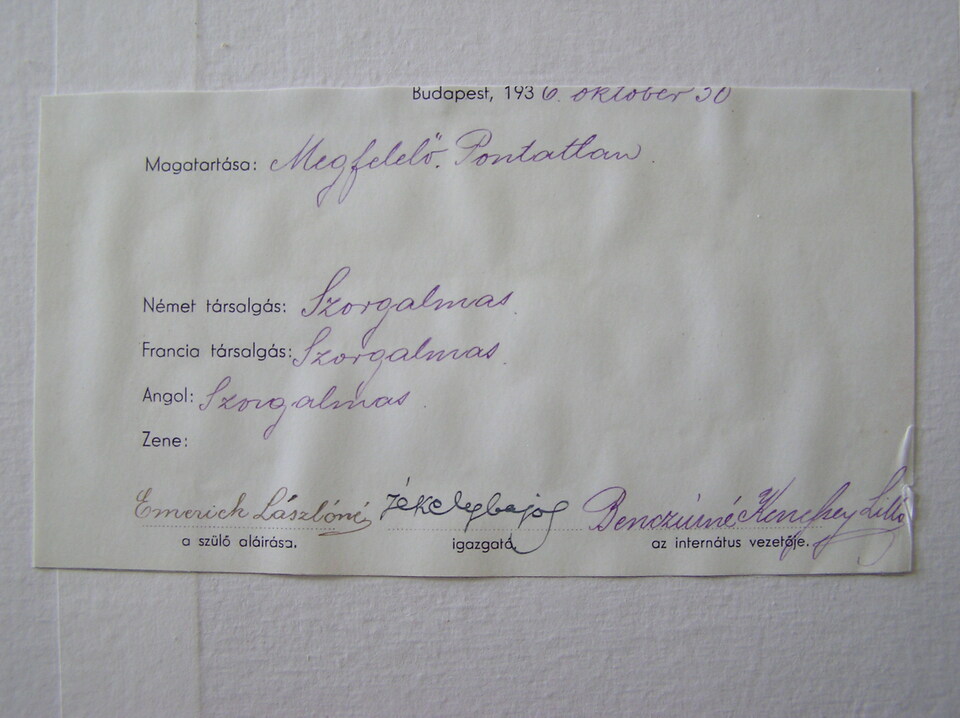 Budapest, 1936. október 30
Magatartása: Megfelelő. Pontatlan.
Német társalgás: Szorgalmas.
Francia társalgás: Szorgalmas.
Angol: Szorgalmas.
Zene:
Emerich Lászlóné
a szülő aláírása. igazgató. az internátus vezetője.